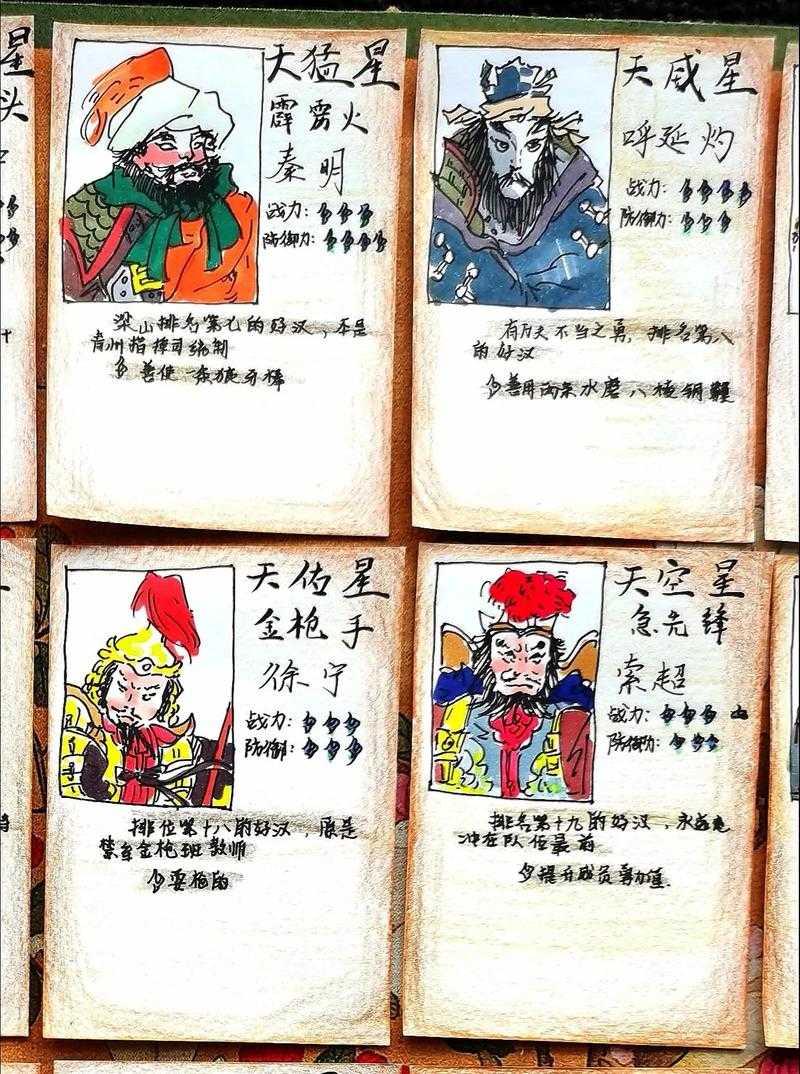 星
头
天猛星
霹雳火
秦明
战力:
防御力:
梁山排名第七的好汉,本是
青州指挥司统制
善使一条狼牙棒
天威星
呼延灼
战力:
防御力:
有万夫不当之勇,排名第八
的好汉
善用两条水磨八棱钢鞭
天佑星
金枪手
徐宁
战力:
防御:
排位第十八的好汉,原是
禁军金枪班教师
耍枪的
天空星
急先锋
索超
战力:
防御力:
排名第十九的好汉,永远是
冲在队伍最前
提升成员